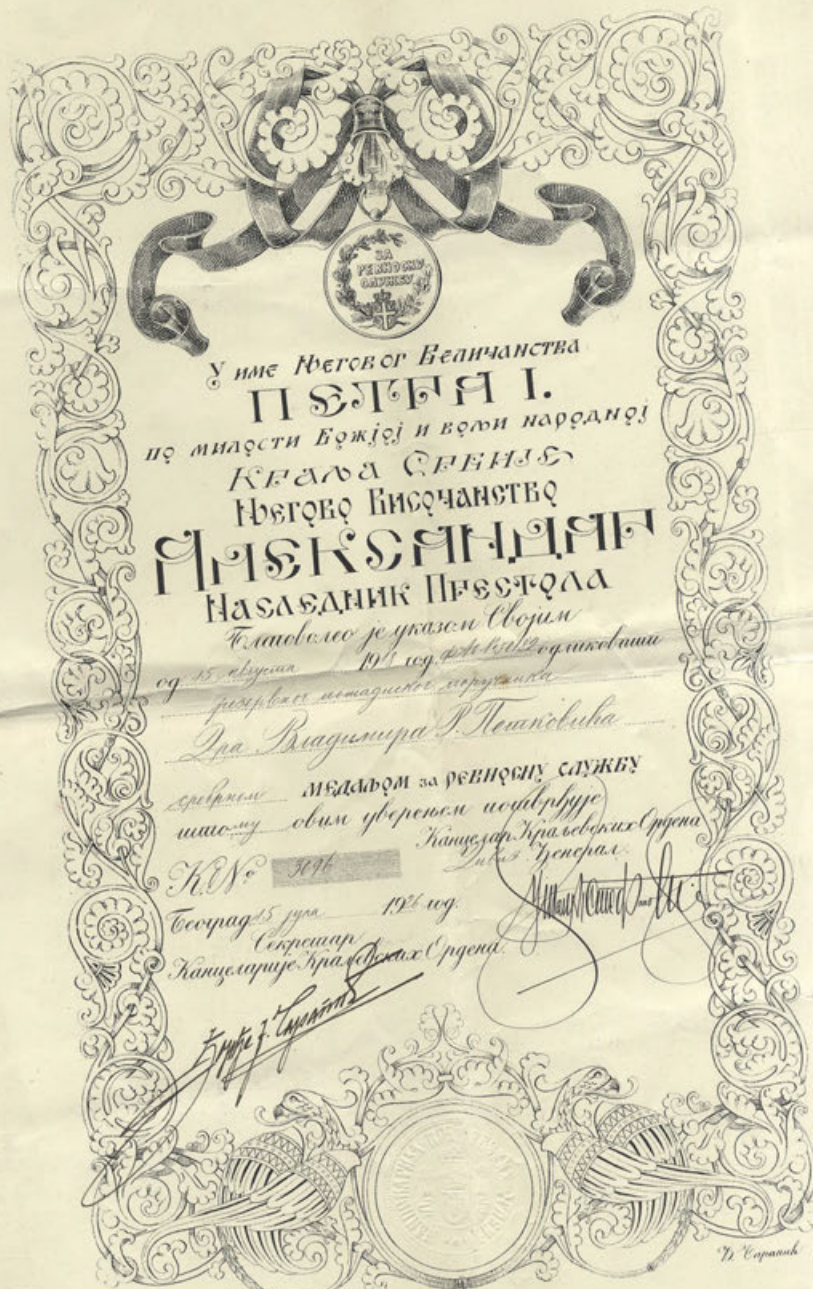 ЗА
РЕВНОСНУ
СЛУЖБУ
У име Његовог Величанства
ПЕТРА I.
по милости Божјој и вољи народној
Краља Србије
Његово Височанство
Александар
Наследник Престола
Благоволео је указом Својим
од 15 августа 191 год. одликовати
резервног
Дра Владимира Р. Петковића
сребрном медаљом за ревносну службу
што му овим уверењем потврђује
Канцелар Краљевских Ордена
Ђенерал
К.№ 3096
Београд 15 јула 1926 год.
Секретар
Канцеларије Краљевских Ордена